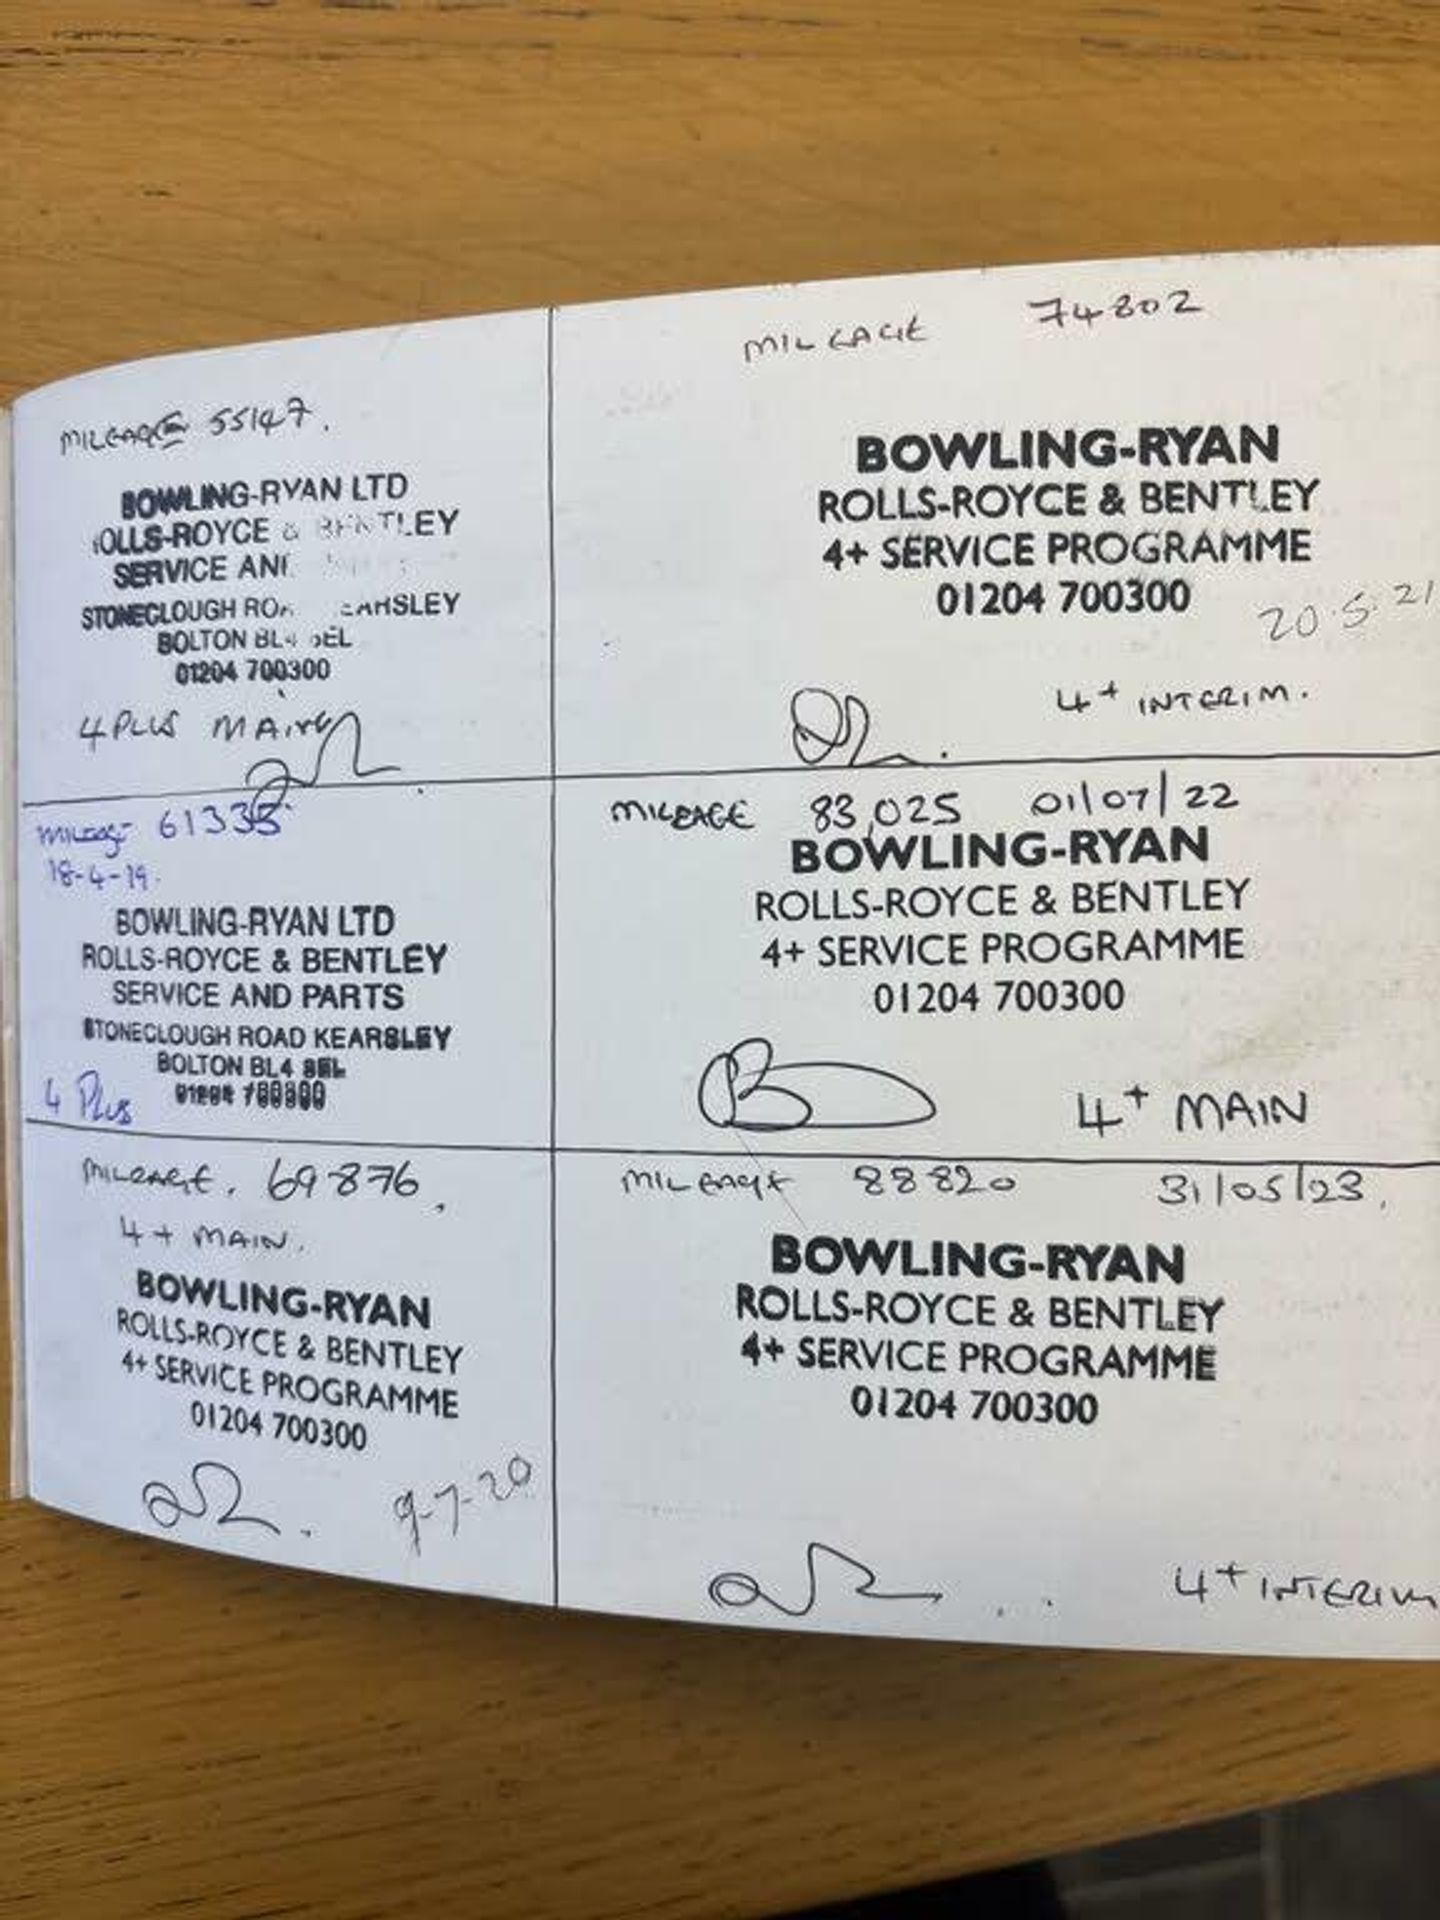 MILEAGE 55147.
BOWLING-RYAN LTD
OLLS-ROYCE & BENTLEY
SERVICE AN
STONECLOUGH ROA EARSLEY
BOLTON BL4 EL
01204 700300
4 PLUS MAIN
MILEAGE 61335
18-4-19.
BOWLING-RYAN LTD
ROLLS-ROYCE & BENTLEY
SERVICE AND PARTS
STONECLOUGH ROAD KEARSLEY
BOLTON BL4 8EL
01204 700300
4 Plus
MILEAGE. 69876.
4+ MAIN.
BOWLING-RYAN
ROLLS-ROYCE & BENTLEY
4+ SERVICE PROGRAMME
01204 700300
9-7-20
MILEAGE 74802
BOWLING-RYAN
ROLLS-ROYCE & BENTLEY
4+ SERVICE PROGRAMME
01204 700300
20.5.21
4+ INTERIM.
MILEAGE 83,025 01/07/22
BOWLING-RYAN
ROLLS-ROYCE & BENTLEY
4+ SERVICE PROGRAMME
01204 700300
4+ MAIN
MILEAGE 88820 31/05/23.
BOWLING-RYAN
ROLLS-ROYCE & BENTLEY
4+ SERVICE PROGRAMME
01204 700300
4+ INTERIM